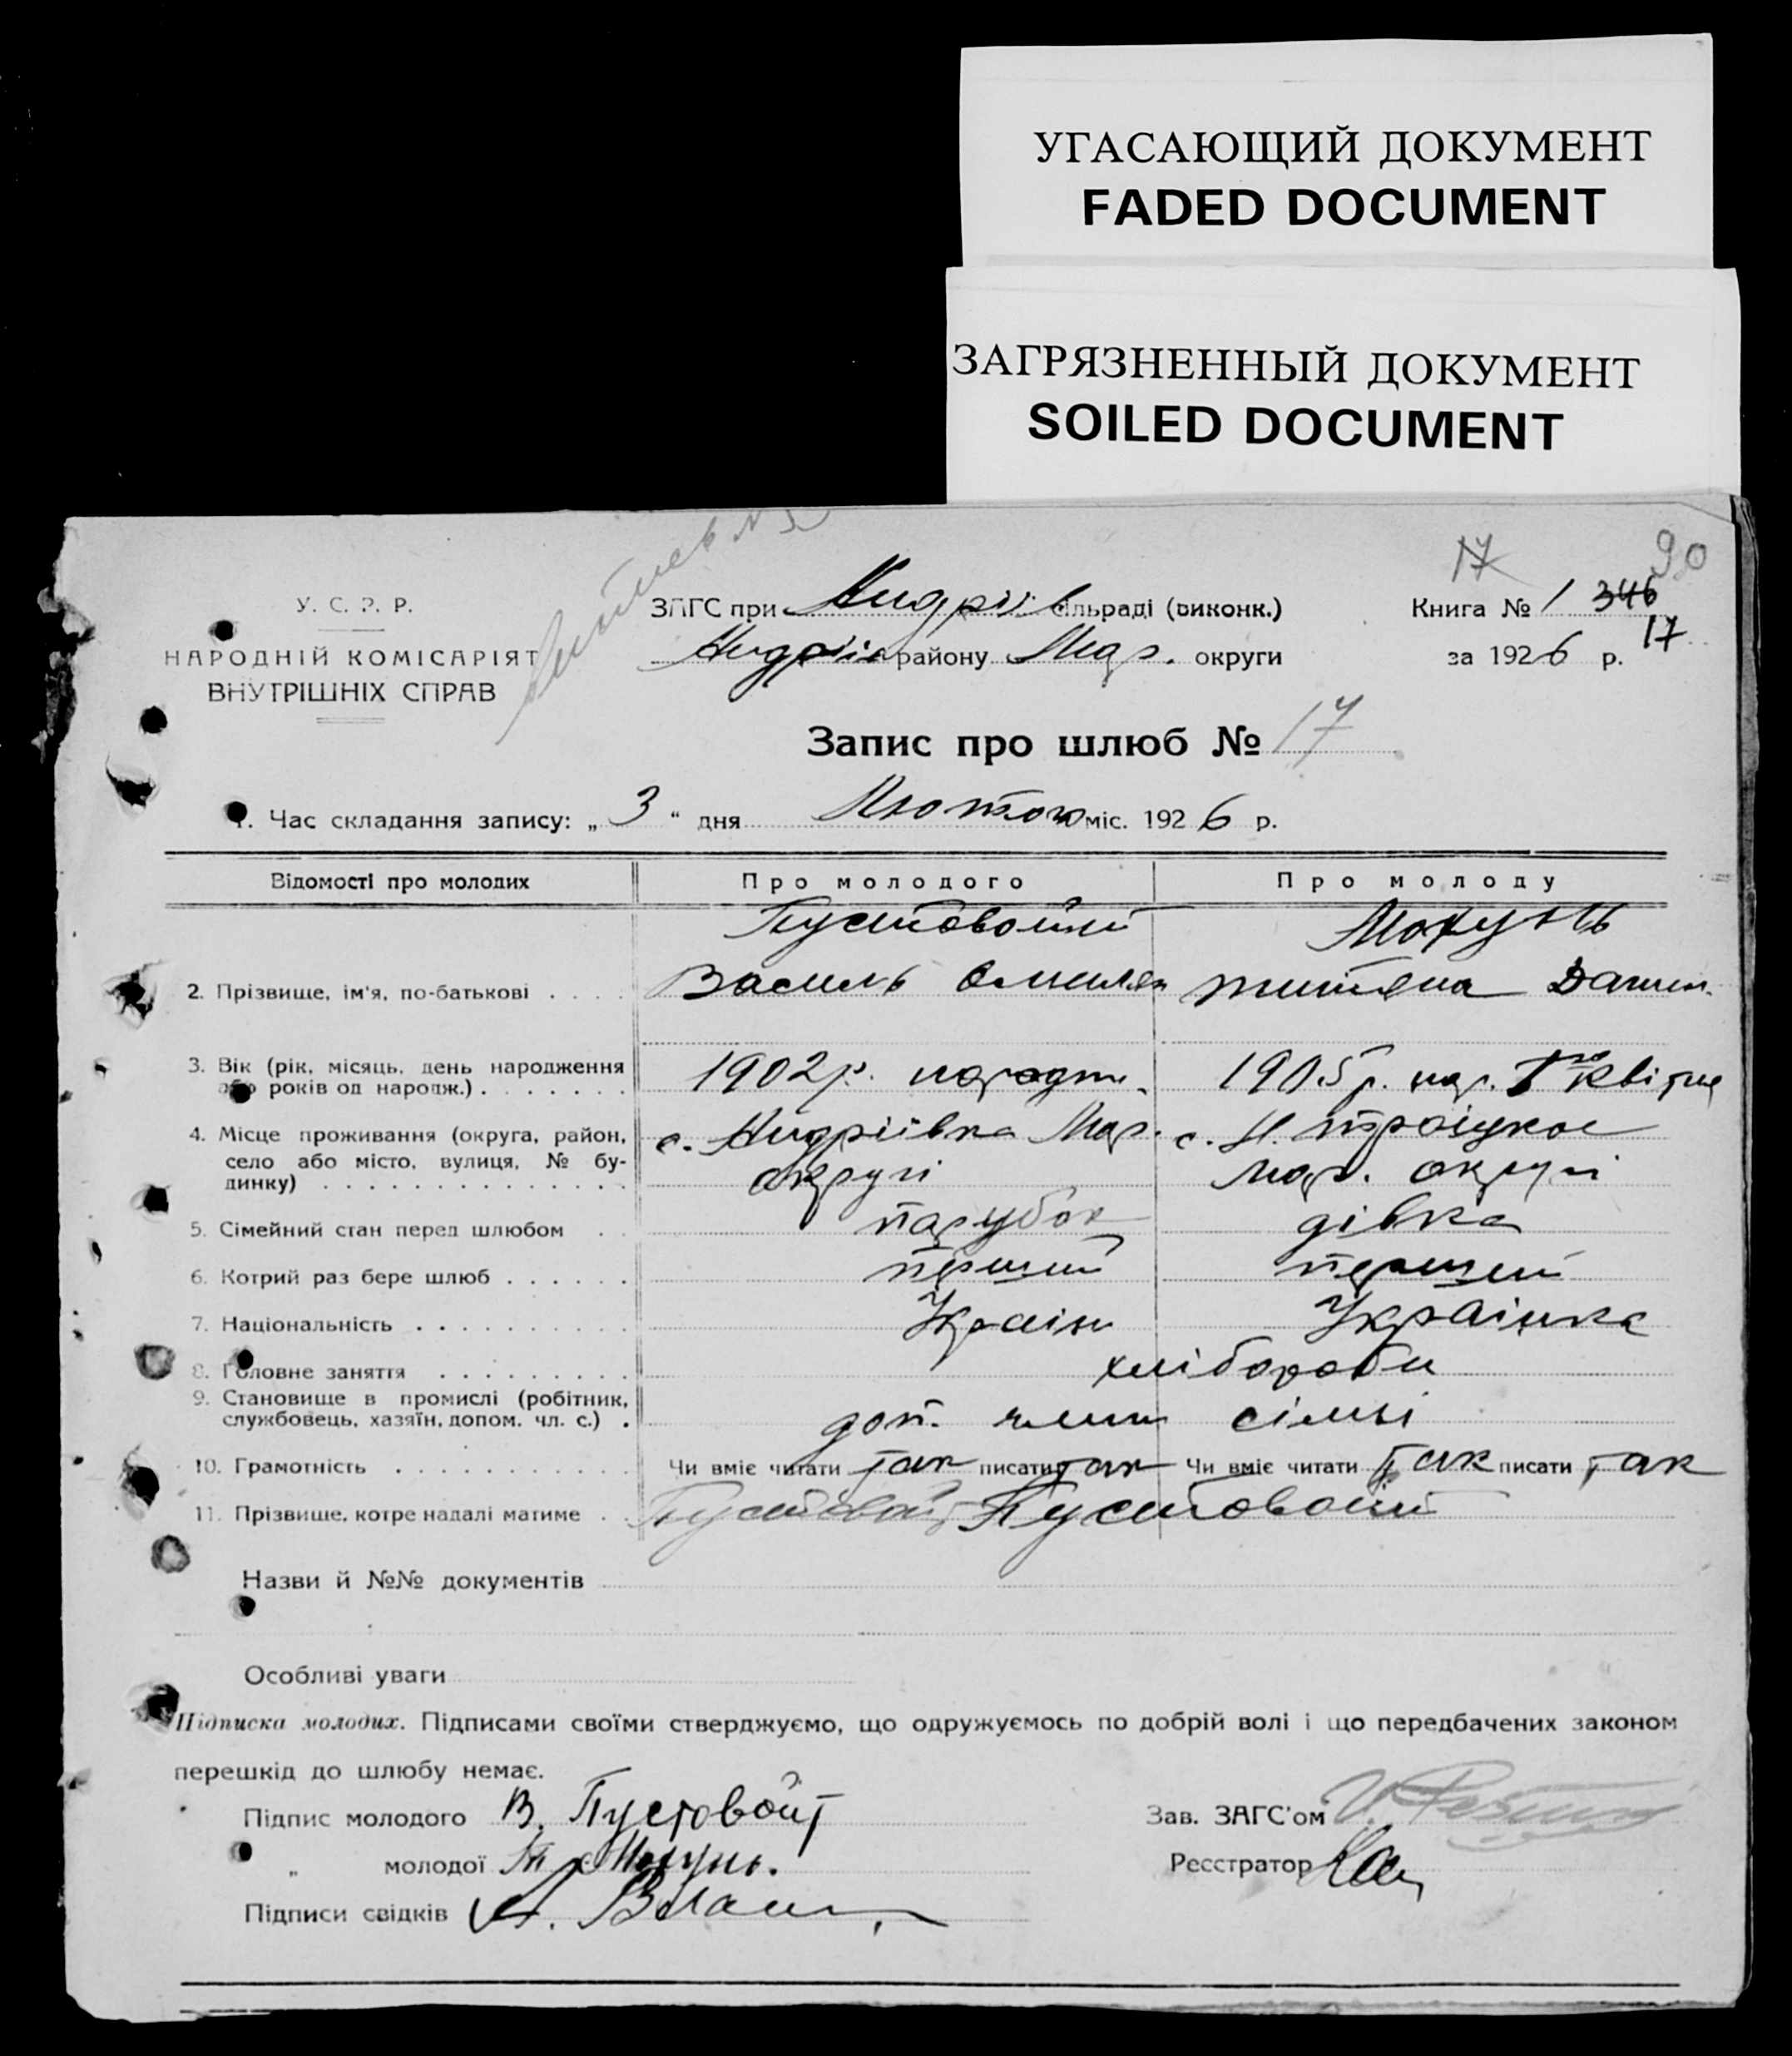 УГАСАЮЩИЙ ДОКУМЕНТ
FADED DOCUMENT
ЗАГРЯЗНЕННЫЙ ДОКУМЕНТ
SOILED DOCUMENT
17 90
У. С. Р. Р.
НАРОДНІЙ КОМІСАРІЯТ
ВНУТРІШНІХ СПРАВ
ЗАГС при Андріїв сільраді (виконк.)
Андріїв району Мар. округи
Книга № 1 346
за 1926 р. 17
Запис про шлюб № 17
1. Час складання запису: „ 3 “ дня Лютого міс. 1926 р.
Відомості про молодих Про молодого Про молоду
Пустовойт Мокунь
2. Прізвище, ім'я, по-батькові . . . . Василь Омелян
3. Вік (рік, місяць, день народження 1902 р. народж. 1905 р. нар. Квітня
або років од народж.) . . . . . . .
4. Місце проживання (округа, район, с. Андріївка Мар. с. Н. Троіцкое
село або місто, вулиця, № бу- округі Мар. округі
динку) . . . . . . . . . . . . . .
5. Сімейний стан перед шлюбом . . парубок дівка
6. Котрий раз бере шлюб . . . . . . перший перший
7. Національність . . . . . . . . . . Українка
8. Головне заняття . . . . . . . . . хлібороби
9. Становище в промислі (робітник,
службовець, хазяїн, допом. чл. с.) . доп. член сімьі
10. Грамотність . . . . . . . . . . . Чи вміє читати так писати так Чи вміє читати так писати так
11. Прізвище, котре надалі матиме . . Пустовойт Пустовойт
Назви й №№ документів
Особливі уваги
Підписка молодих. Підписами своїми стверджуємо, що одружуємось по добрій волі і що передбачених законом
перешкід до шлюбу немає.
Підпис молодого В. Пустовойт
Зав. ЗАГС'ом
„ молодої Мокунь.
Реєстратор
Підписи свідків